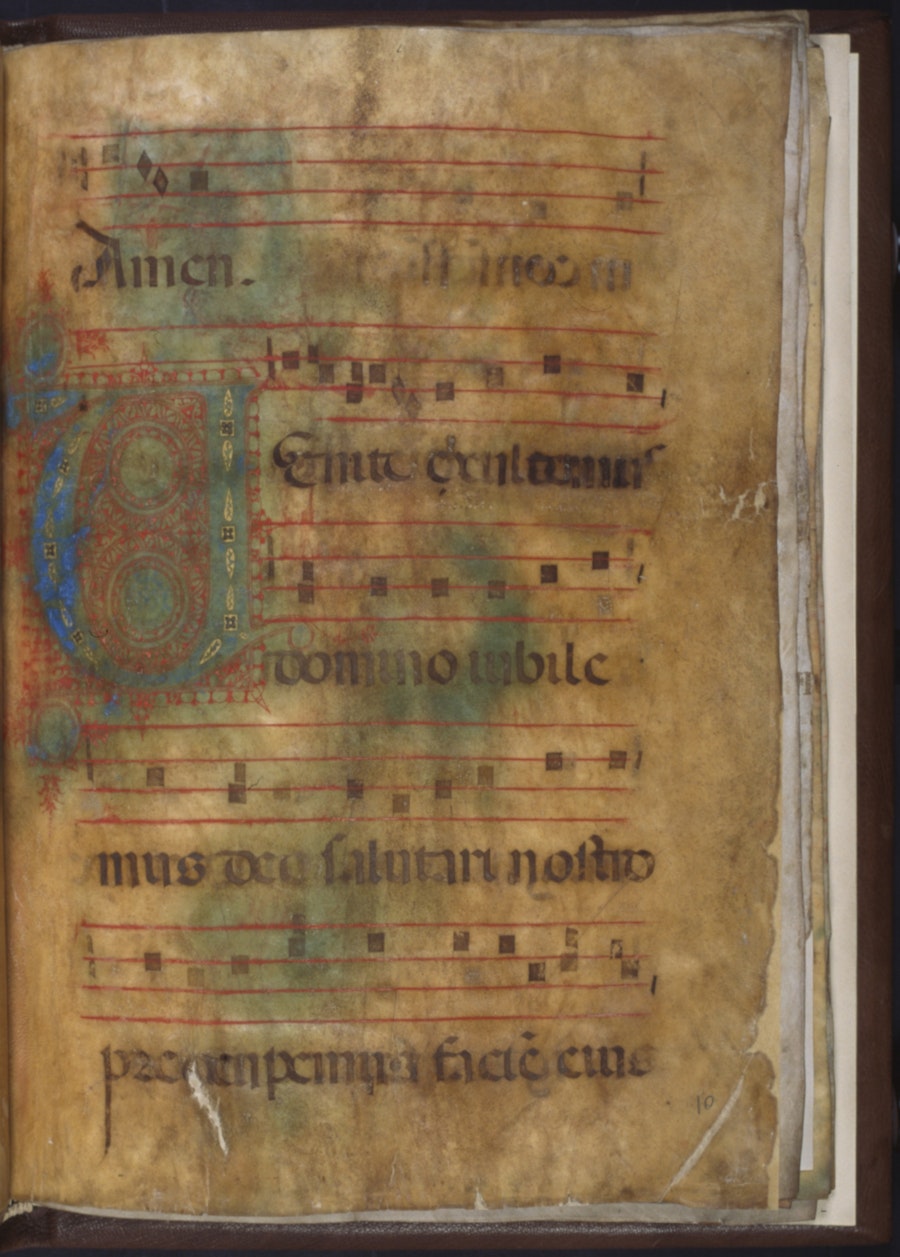 Amen.
VEnite exultemus
domino iubile
mus deo salutari nostro
preocupemus faciē eius
10